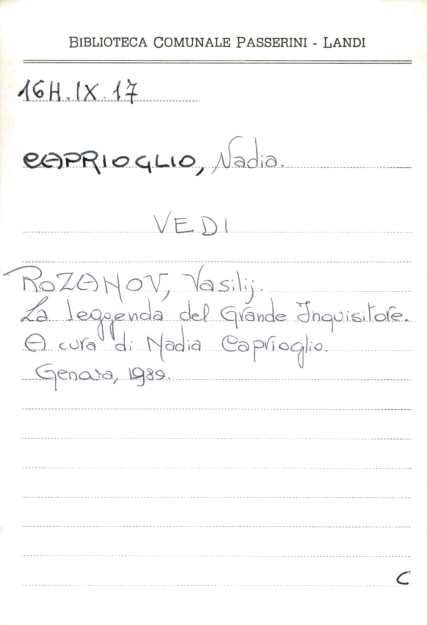 BIBLIOTECA COMUNALE PASSERINI - LANDI
16H.IX.17
CAPRIOGLIO, Nadia.
VEDI
ROZANOV, Vasilij.
La leggenda del Grande Inquisitore.
A cura di Nadia Caprioglio.
Genova, 1989.
C